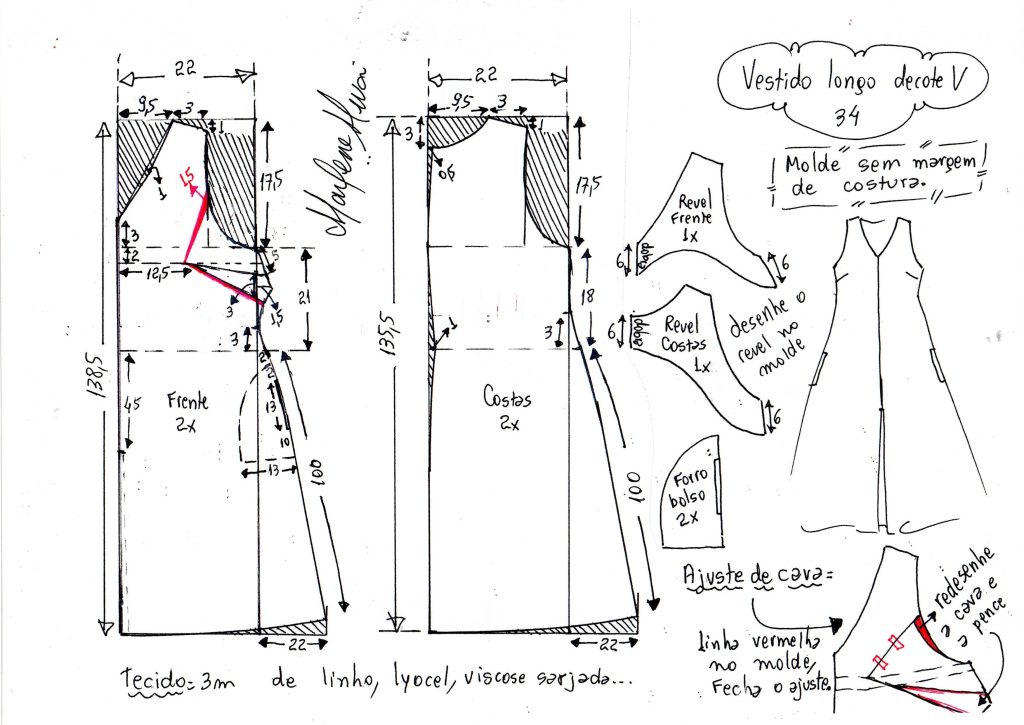 Vestido longo decote V
34
Molde sem margem
de costura.
Marlene Mukai
22
9,5
3
1
3
1
1,5
17,5
3
2
12,5
5
3
1,5
21
3
2
138,5
45
Frente
2x
13
10
13
100
22
22
9,5
3
1
3
0,5
17,5
18
3
1
135,5
Costas
2x
100
22
Revel
Frente
1x
dobra
6
6
Revel
Costas
1x
dobra
6
6
desenhe o
revel no
molde
Forro
bolso
2x
Ajuste de cava=
linha vermelha
no molde,
Fecha o ajuste.
redesenhe
a cava e
a pence
Tecido= 3m de linho, lyocel, viscose sarjada...